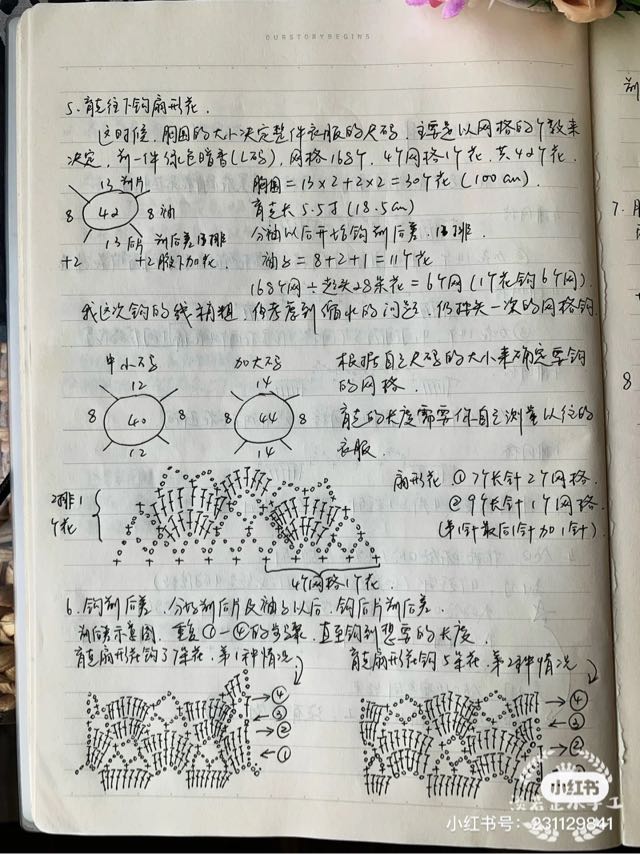 OURSTORYBEGINS
5. 育克往下钩扇形花.
这时候, 胸围的大小决定整件衣服的尺码, 主要是以网格的个数来
决定, 前一件绿色暗香(L码), 网格168个, 4个网格1个花, 共42个花.
13 前片
8 42 8 袖
13 后片 前后差4排
+2 +2 腋下加花.
胸围 = 13×2+2×2 = 30个花 (100cm).
育克长 5.5寸 (18.5cm)
分袖以后开始钩前后差, 4排.
袖子 = 8+2+1 = 11个花
168个网 ÷ 起头28朵花 = 6个网 (1个花钩6个网).
我这次钩的线稍粗, 但考虑到缩水的问题, 仍按头一次的网格钩.
中小码
12
8 40 8
12
加大码
14
8 44 8
14
根据自己尺码的大小来确定要钩
的网格.
育克的长度需要你自己测量以往的
衣服.
扇形花 ① 7个长针 2个网格.
② 9个长针 1个网格.
(第1针最后1针加1针)
2排1
个花
4个网格1个花
6. 钩前后差, 分好前后片及袖子以后, 钩后片前后差.
前后差示意图, 重复①—④的步骤, 直至钩到想要的长度.
育克扇形花钩了7朵花, 第1种情况
育克扇形花钩5朵花, 第2种情况
④
③
②
①
④
③
②
7.
8
小红书
小红书号: 231129841